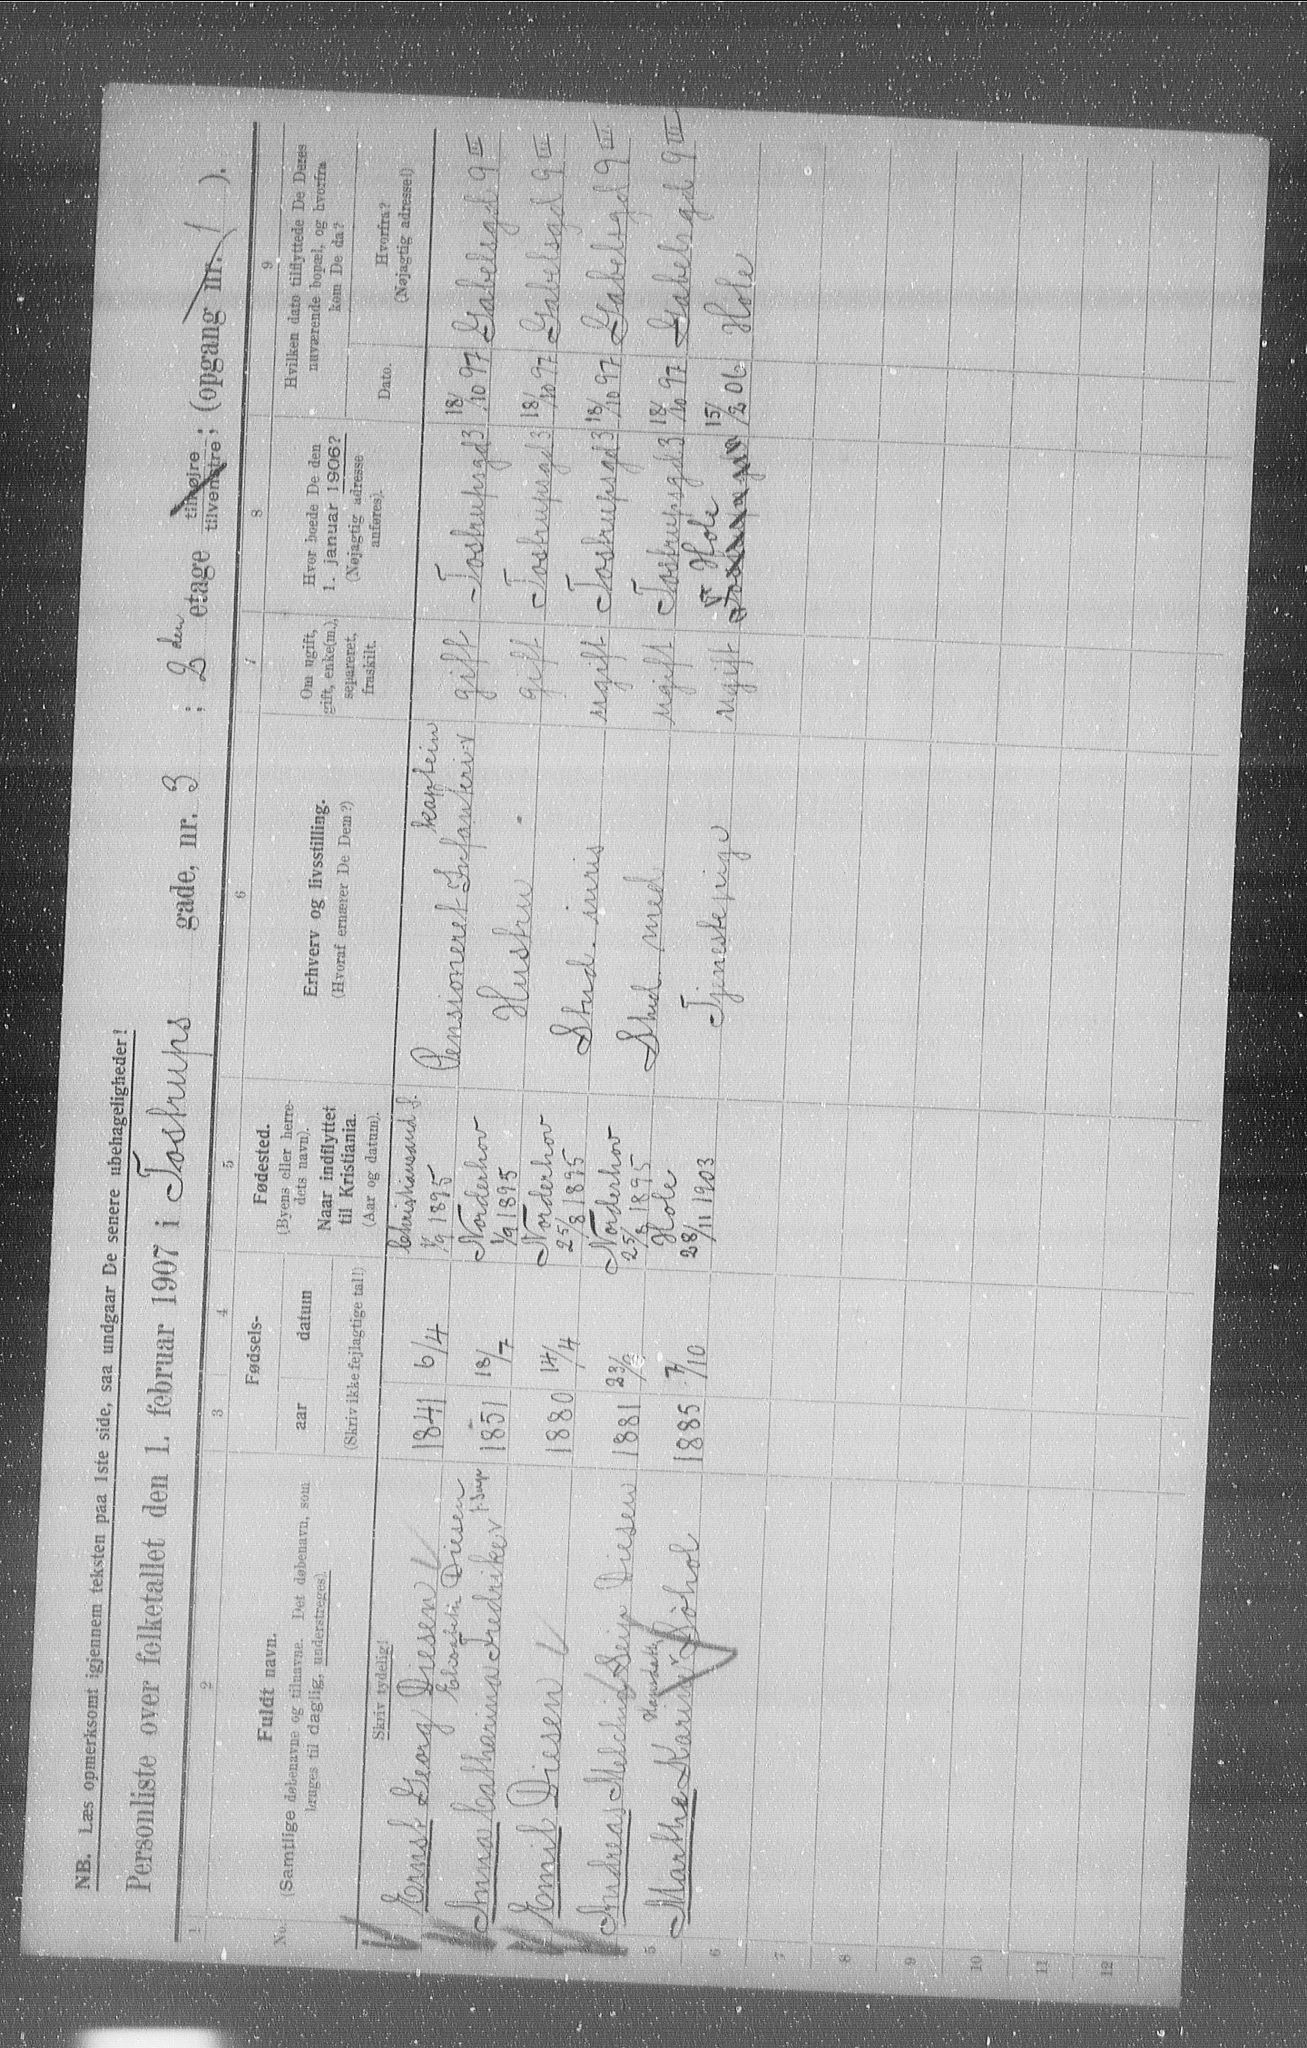 NB. Læs opmerksomt igjennem teksten paa 1ste side, saa undgaar De senere ubehageligheder!
Personliste over folketallet den 1. februar 1907 i Tostrups gade, nr. 3 ; 2 den etage tilhøjre tilvenstre; (opgang nr. / ).
1 2 3 4 5 6 7 8 9
No. Fuldt navn.
(Samtlige døbenavne og tilnavne. Det døbenavn, som
bruges til daglig, understreges).
Skriv tydelig!
Fødsels-
aar datum
(Skriv ikke fejlagtige tal!)
Fødested.
(Byens eller herre-
dets navn).
Naar indflyttet
til Kristiania.
(Aar og datum).
Erhverv og livsstilling.
(Hvoraf ernærer De Dem?)
Om ugift,
gift, enke(m.),
separeret,
fraskilt.
Hvor boede De den
1. januar 1906?
(Nøjagtig adresse
anføres).
Hvilken dato tilflyttede De Deres
nuværende bopæl, og hvorfra
kom De da?
Dato. Hvorfra?
(Nøjagtig adresse!)
Ernst Georg Diesen 1841 6/4 Christiansand S. 1/9 1895 Pensioneret Infanteri kaptein gift Tostrupsgd 3 18/10 97 Gabelsgd 9 III
Anna Catharina Fredrike Elisabeth Diesen 1851 18/7 Norderhov 1/9 1895 Hustru gift Tostrupsgd 3 18/10 97 Gabelsgd 9 III
Emil Diesen 1880 14/4 Norderhov 25/8 1895 Stud. juris ugift Tostrupsgd 3 18/10 97 Gabelsgd 9 III
Andreas Melchior Seip Diesen 1881 Norderhov 25/8 1895 Stud med ugift Tostrupsgd 3 18/10 97 Gabelsgd 9 III
5 Marthe Karine Hansdatter 1885 7/10 Hole 28/11 1903 Tjenestepige ugift Hole 15/2 06 Hole
6
7
8
9
10
11
12